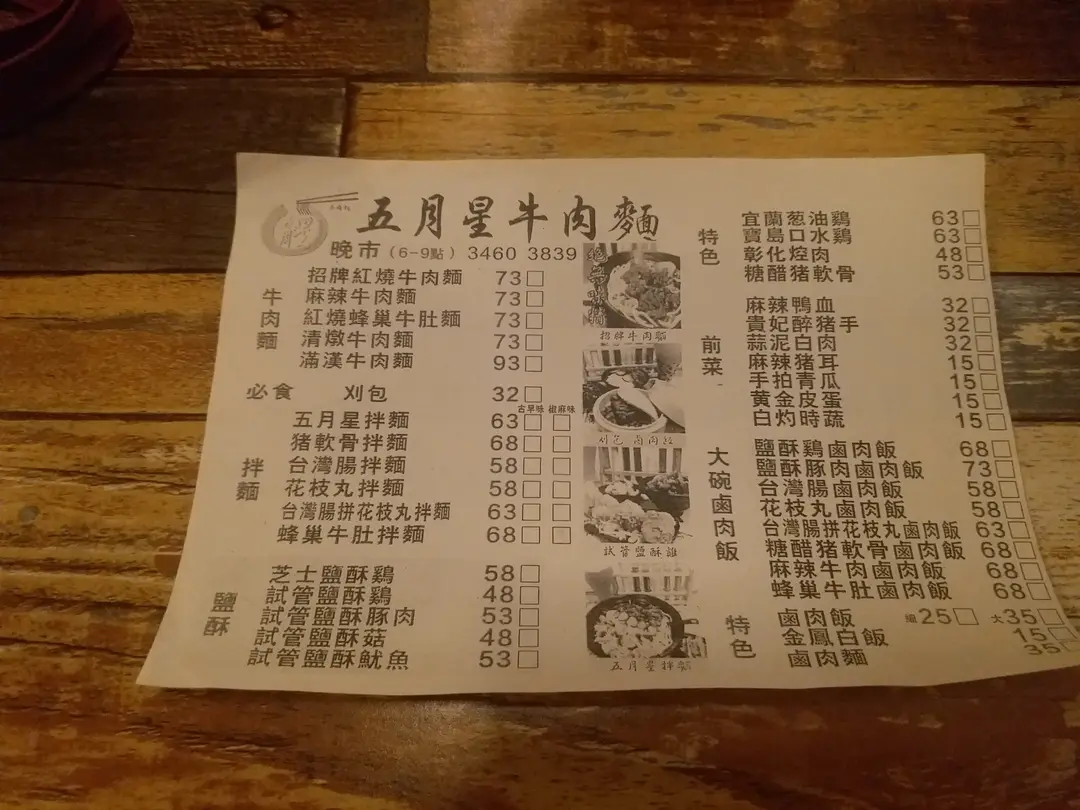 五月星牛肉麵
晚市(6-9點) 3460 3839
牛肉麵
招牌紅燒牛肉麵 73
麻辣牛肉麵 73
紅燒蜂巢牛肚麵 73
清燉牛肉麵 73
滿漢牛肉麵 93
必食 刈包 32
古早味 椒麻味
拌麵
五月星拌麵 63
猪軟骨拌麵 68
台灣腸拌麵 58
花枝丸拌麵 58
台灣腸拼花枝丸拌麵 63
蜂巢牛肚拌麵 68
鹽酥
芝士鹽酥鷄 58
試管鹽酥鷄 48
試管鹽酥豚肉 53
試管鹽酥菇 48
試管鹽酥魷魚 53
招牌牛肉麵
刈包
試管鹽酥雞
五月星拌麵
特色
宜蘭葱油鷄 63
寶島口水鷄 63
彰化焢肉 48
糖醋猪軟骨 53
前菜
麻辣鴨血 32
貴妃醉猪手 32
蒜泥白肉 32
麻辣猪耳 15
手拍青瓜 15
黄金皮蛋 15
白灼時蔬 15
大碗鹵肉飯
鹽酥鷄鹵肉飯 68
鹽酥豚肉鹵肉飯 73
台灣腸鹵肉飯 58
花枝丸鹵肉飯 58
台灣腸拼花枝丸鹵肉飯 63
糖醋猪軟骨鹵肉飯 68
麻辣牛肉鹵肉飯 68
蜂巢牛肚鹵肉飯 68
特色
鹵肉飯 細25 大35
金鳳白飯 15
鹵肉麵 35